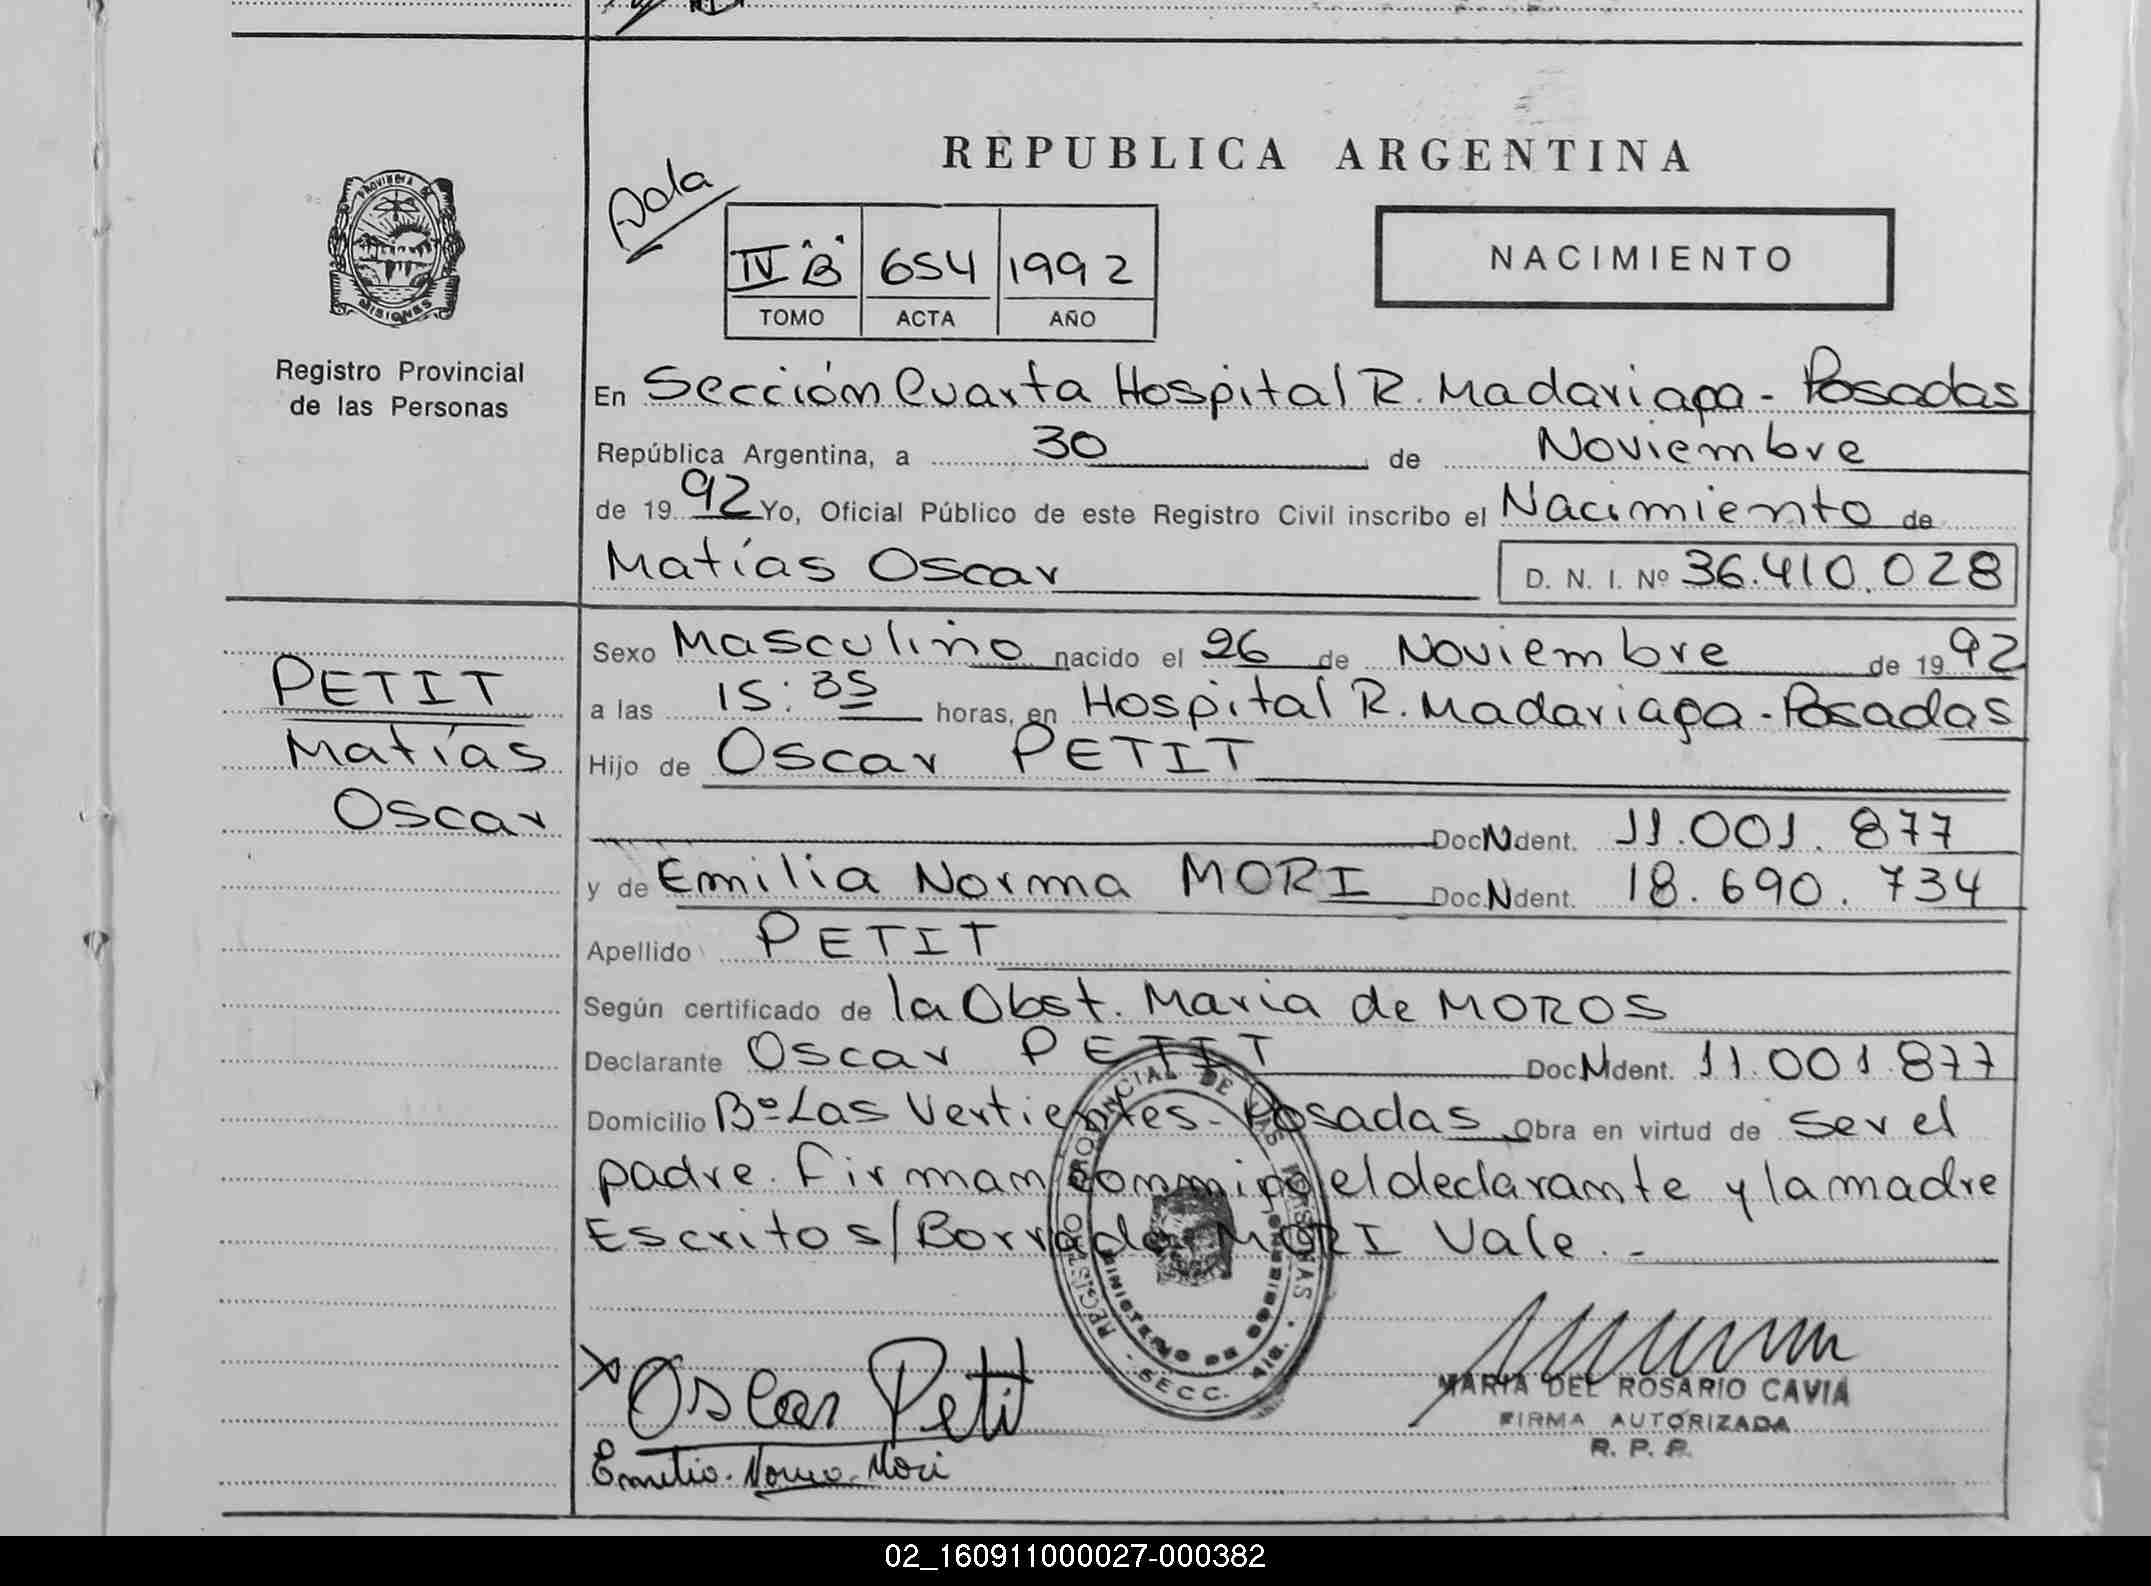 REPUBLICA ARGENTINA
PROVINCIA DE
MISIONES
Registro Provincial
de las Personas
IV "B" 654 1992
TOMO ACTA AÑO
NACIMIENTO
En Sección Cuarta Hospital R. Madariaga - Posadas
República Argentina, a 30 de Noviembre
de 1992 Yo, Oficial Público de este Registro Civil inscribo el Nacimiento de
Matías Oscar D. N. I. Nº 36.410.028
PETIT
Matías
Oscar
Sexo Masculino nacido el 26 de Noviembre de 1992
a las 15:35 horas, en Hospital R. Madariaga - Posadas
Hijo de Oscar PETIT
Doc N Ident. 11.001.877
y de Emilia Norma MORI Doc N Ident. 18.690.734
Apellido PETIT
Según certificado de la Obst. Maria de MOROS
Declarante Oscar PETIT Doc N Ident. 11.001.877
Domicilio Bº Las Vertientes - Posadas Obra en virtud de ser el
padre. Firman conmigo el declarante y la madre
Escritos/Borrado MORI Vale. -
REGISTRO PROVINCIAL DE LAS PERSONAS
MINISTERIO DE GOBIERNO
SECC. 4ta. MISIONES
Oscar Petit
Emilia Norma Mori
MARIA DEL ROSARIO CAVIA
FIRMA AUTORIZADA
R. P. P.
02_160911000027-000382